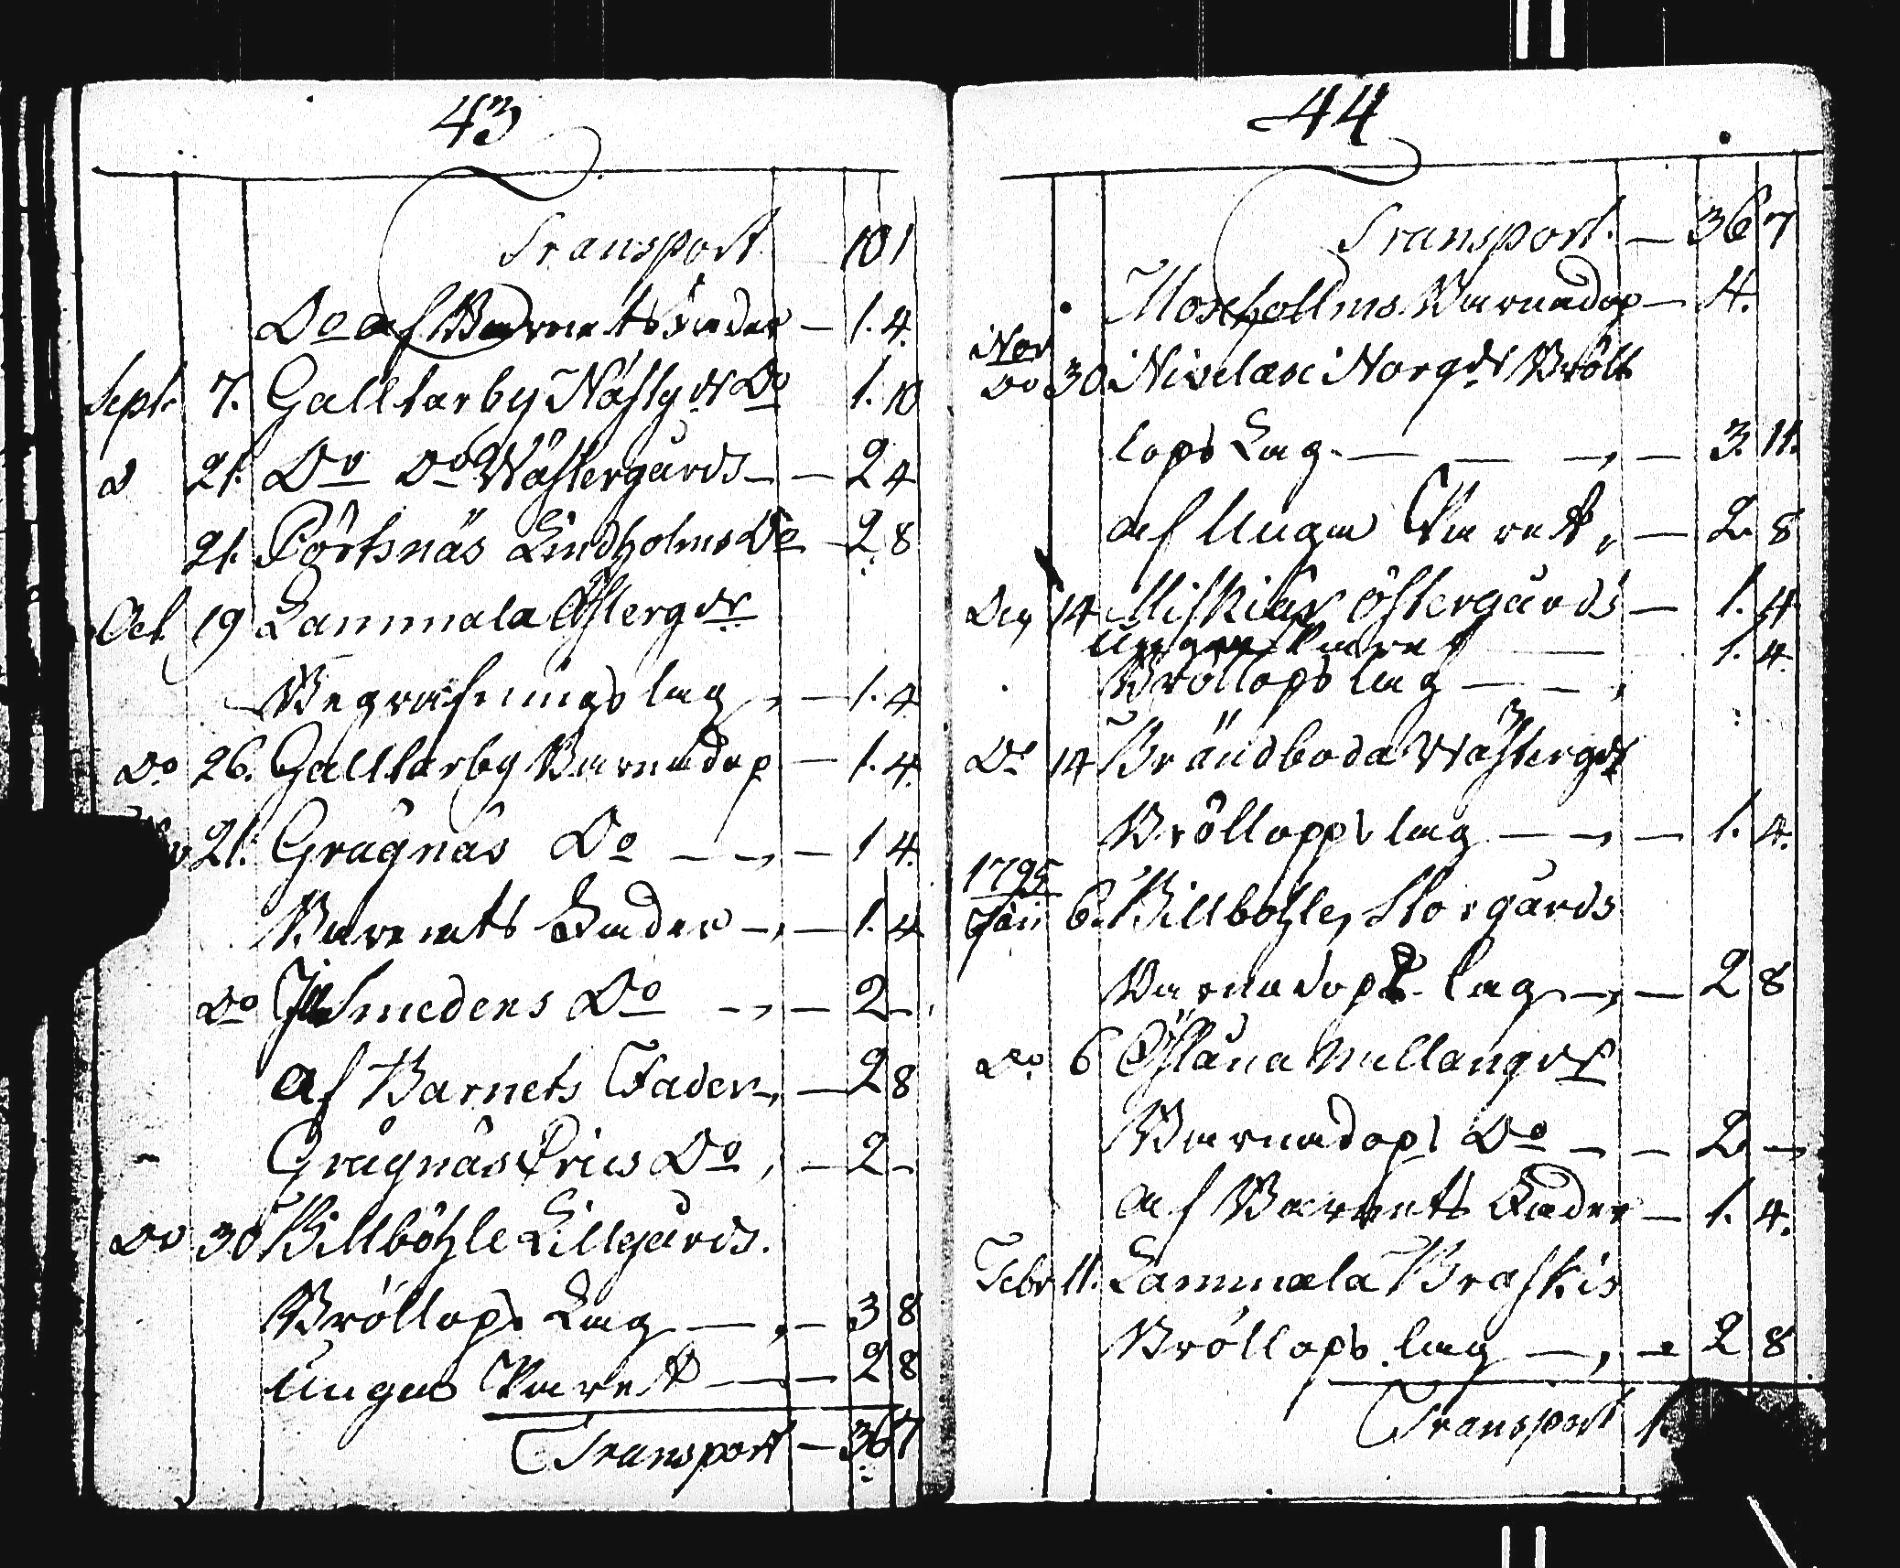 43
Transport 101
Do af Barnets Fader — 1. 4.
Sept. 7. Galltarby Nästgds Do 1. 10
d 21. Do Do Wästergårds — — 2 4
21. Pörtsnäs Lindholms Do — 2 8
Oct. 19 Lammala Östergds
Begrafnings lag, — 1. 4
Do 26. Galltarby Barnadop — 1. 4.
21. Grågnäs Do — —, — 1 4.
Barnets Fader —, — 1. 4
Do Smedens Do —, — 2 —
Af Barnets Fader, — 2 8
Grågnäs Erics Do, — 2 —
Do 30 Billböhle Lillgårds.
Bröllops Lag — , — 3 8
Unga Paret — — 2 8
Transport — 36 7
44
Transport. — 36 7
Moxhollms Barnadop — 4.
Nov
Do 30 Nivelax Norgds Bröll
lops Lag. — — —, — 3. 11.
af Unga Paret, — 2. 8
Dec 14 Miskias Östergårds — 1. 4
Unga Paret — 1. 4
Bröllops lag — — ,
Do 14 Brändboda Wästergds
Bröllopps lag — —, — 1. 4.
1795
Jan 6. Billbohle, Storgårds
Barnadops lag —, — 2 8
Do 6 Östäna Mellangds
Barnadops Do — — 2 —
af Barnets Fader — 1. 4.
Febr 11. Lammala Braskis
Bröllops lag —, — 2 8
Transport